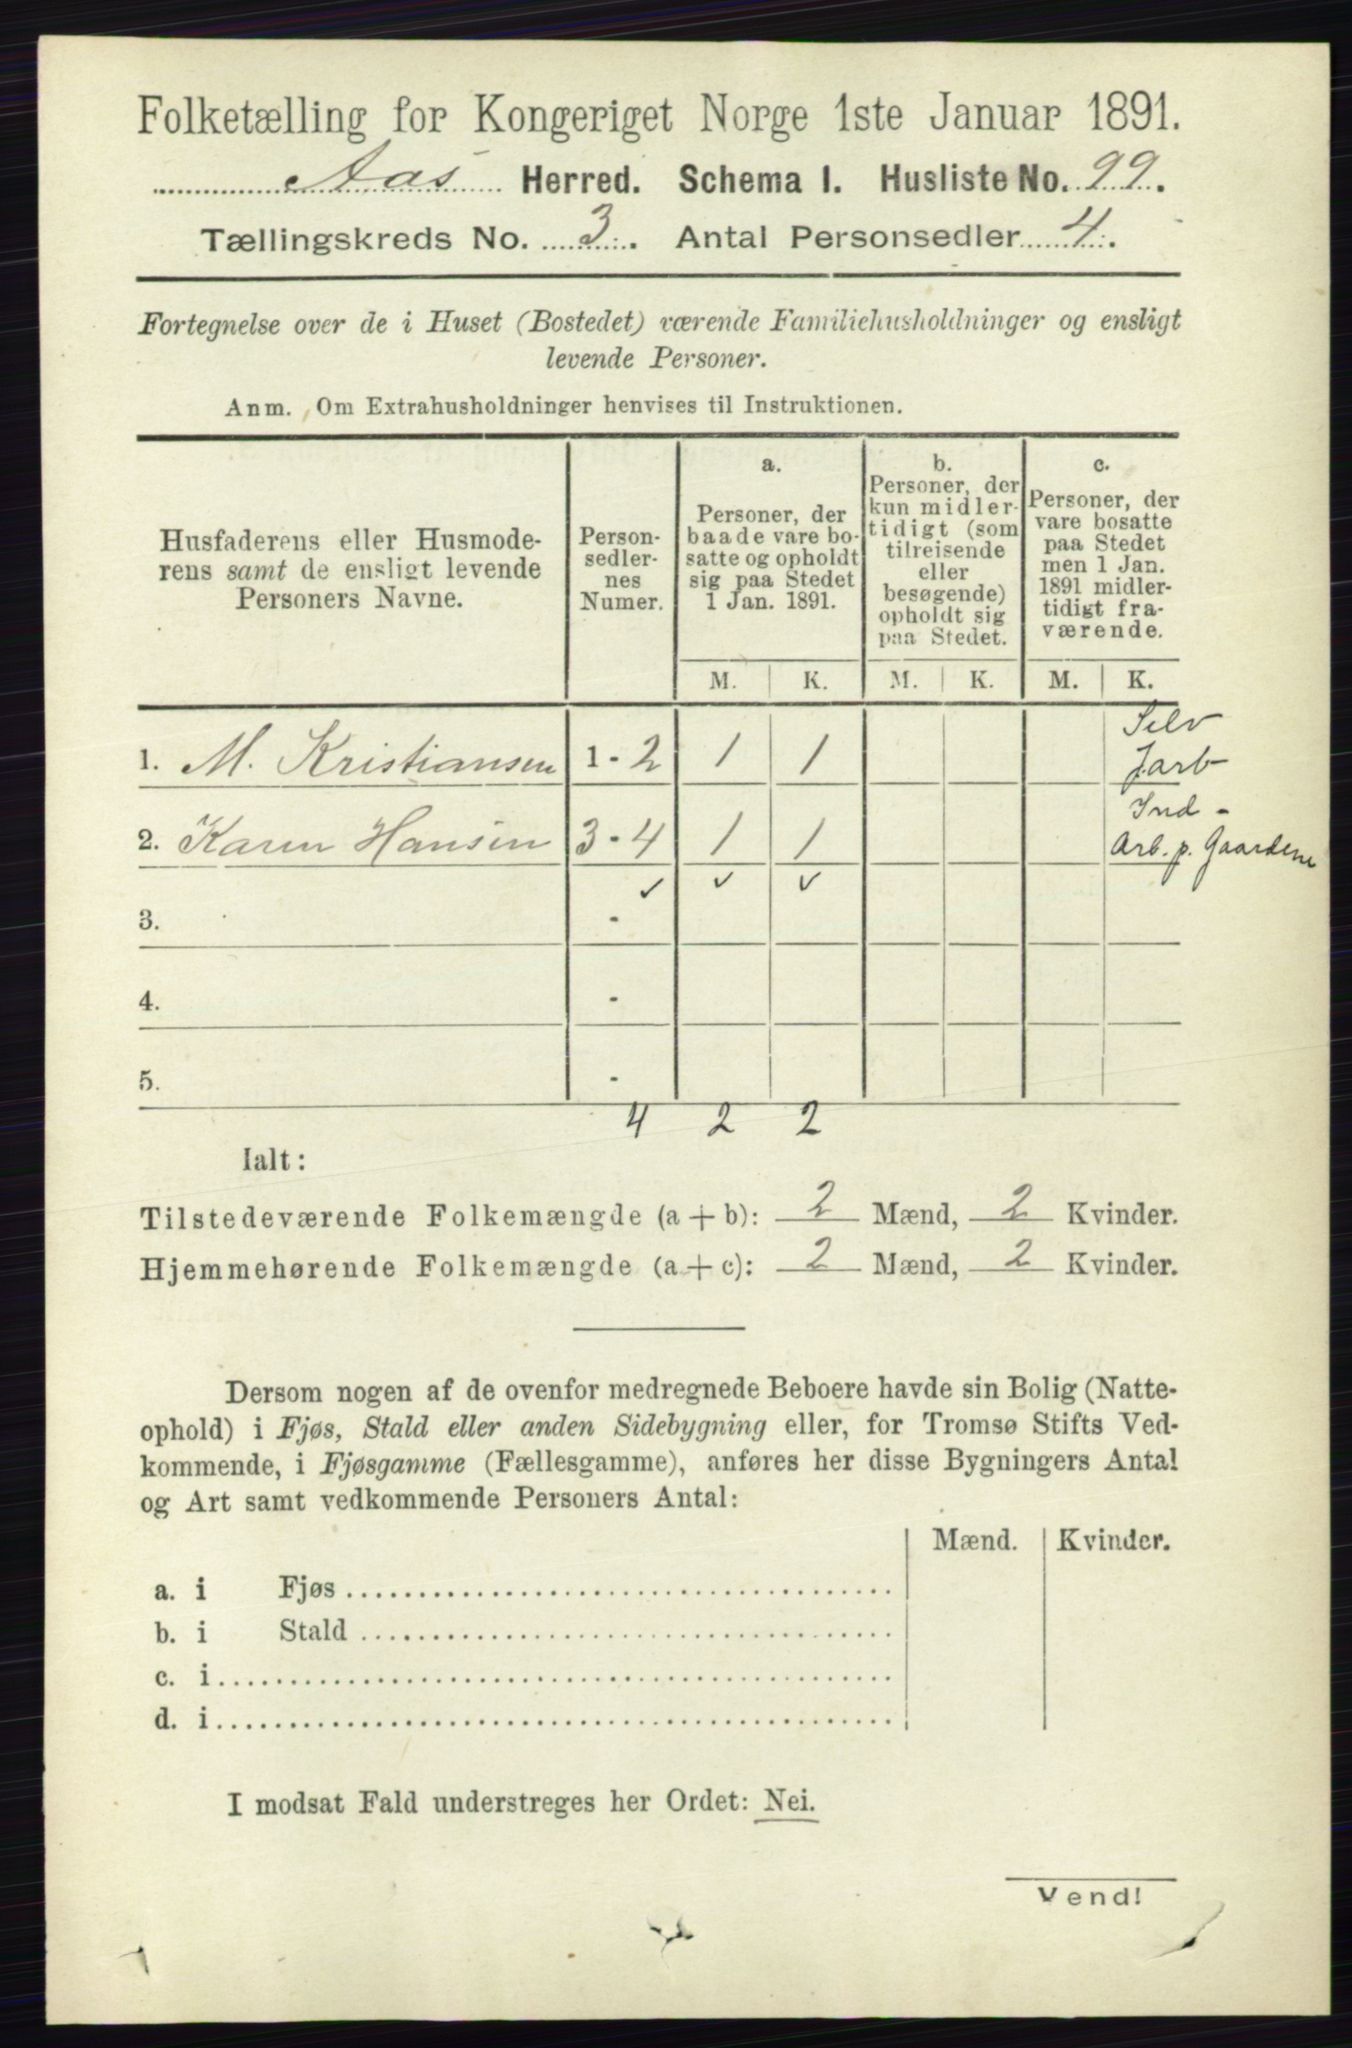 Folketælling for Kongeriget Norge 1ste Januar 1891.
Aas Herred. Schema I. Husliste No. 99.
Tællingskreds No. 3. Antal Personsedler 4.
Fortegnelse over de i Huset (Bostedet) værende Familiehusholdninger og ensligt
levende Personer.
Anm. Om Extrahusholdninger henvises til Instruktionen.
Husfaderens eller Husmode-
rens samt de ensligt levende
Personers Navne.
Person-
sedler-
nes
Numer.
a.
Personer, der
baade vare bo-
satte og opholdt
sig paa Stedet
1 Jan. 1891.
b.
Personer, der
kun midler-
tidigt (som
tilreisende
eller
besøgende)
opholdt sig
paa Stedet.
c.
Personer, der
vare bosatte
paa Stedet
men 1 Jan.
1891 midler-
tidigt fra-
værende.
M. K. M. K. M. K.
1. M. Kristiansen 1 - 2 1 1 Selv
Jarb
2. Karen Hansen 3 - 4 1 1 Ind -
Arb. p. Gaardene
✓ ✓ ✓
3. -
4. -
5. -
4 2 2
Ialt:
Tilstedeværende Folkemængde (a + b): 2 Mænd, 2 Kvinder.
Hjemmehørende Folkemængde (a + c): 2 Mænd, 2 Kvinder.
Dersom nogen af de ovenfor medregnede Beboere havde sin Bolig (Natte-
ophold) i Fjøs, Stald eller anden Sidebygning eller, for Tromsø Stifts Ved-
kommende, i Fjøsgamme (Fællesgamme), anføres her disse Bygningers Antal
og Art samt vedkommende Personers Antal:
Mænd. Kvinder.
a. i Fjøs
b. i Stald
c. i
d. i
I modsat Fald understreges her Ordet: Nei.
Vend!